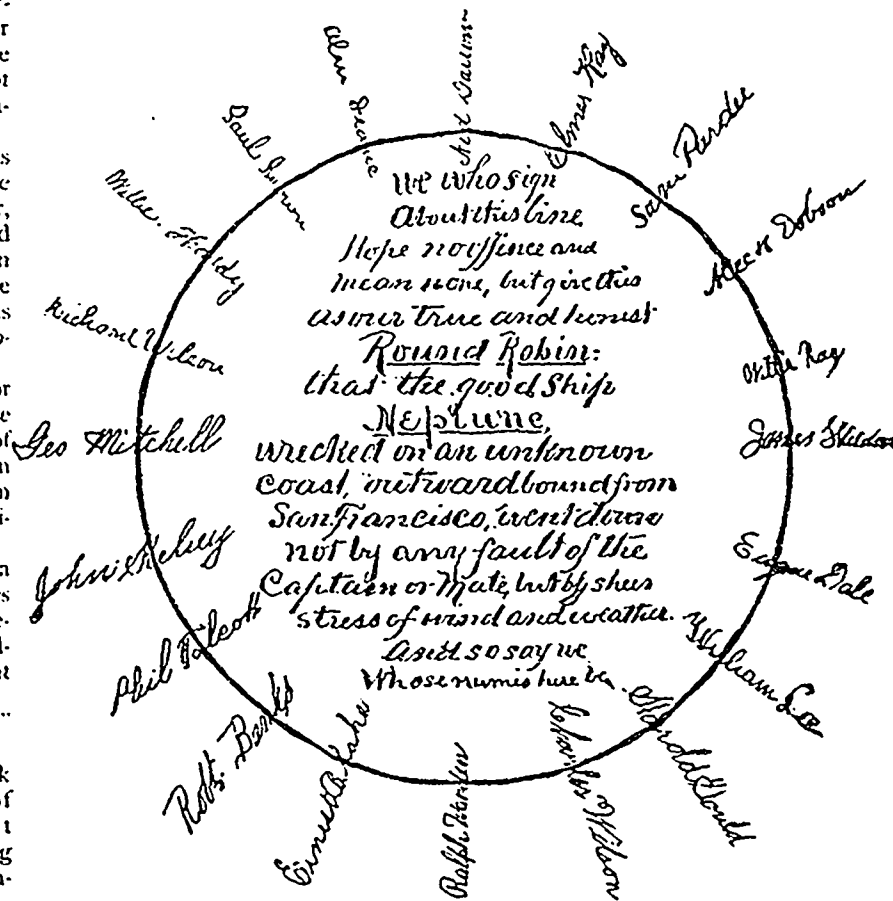 We who sign
About this line
Hope no offence and
mean none, but give this
as our true and honest
Round Robin:
that the good Ship
Neptune,
wrecked on an unknown
coast, outward bound from
San Francisco, went down
not by any fault of the
Captain or Mate, but by sheer
stress of wind and weather.
And so say we
Whose names here be.
Elmer Kay
Sam Pardee
Aleck Dobson
Willie Ray
James Sheldon
Eugene Dale
William Coe
Harold Gould
Charles Wilson
Ralph
Ernest Blake
Robt. Banks
Phil Talcott
John Kelsey
Geo Mitchell
Richard Wilson
Willie Hardy
Paul Brown